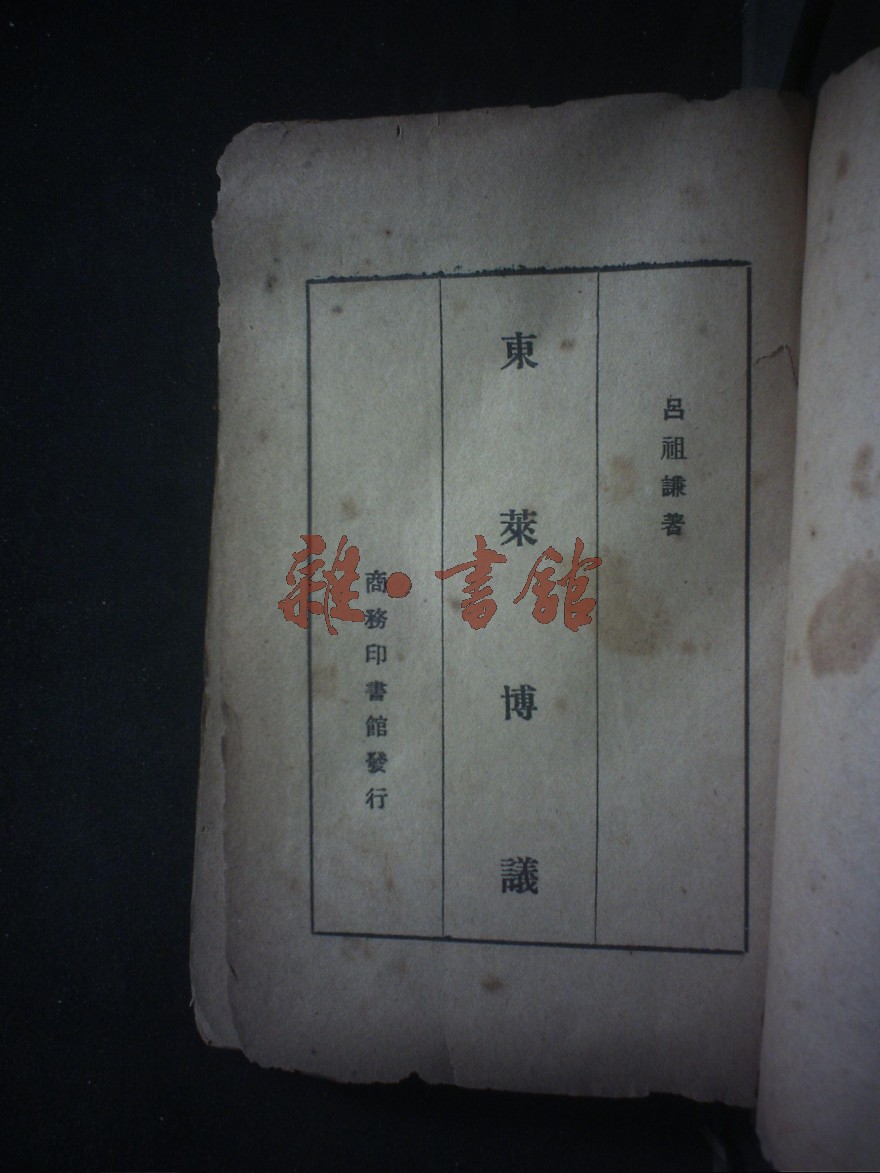 呂祖謙著
東萊博議
商務印書館發行
雜·書館